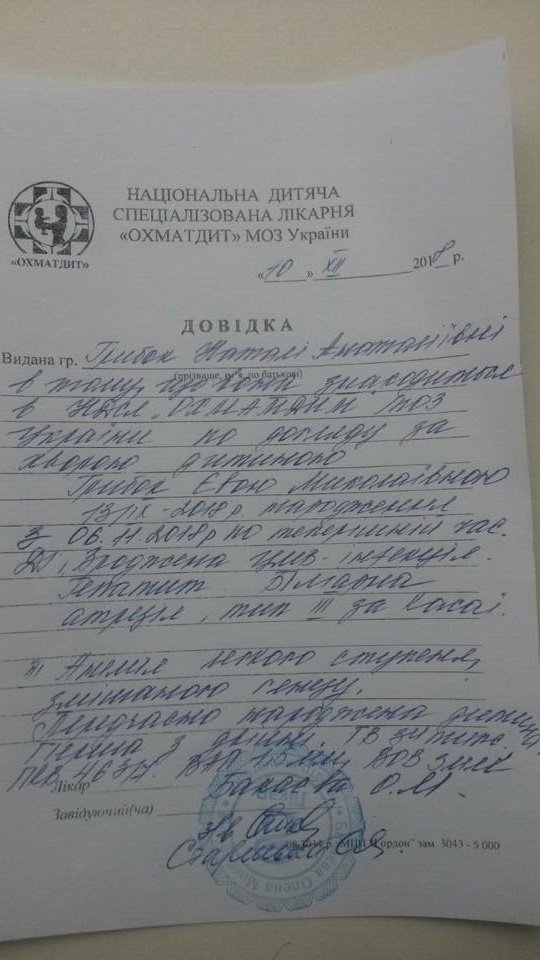 НАЦІОНАЛЬНА ДИТЯЧА
СПЕЦІАЛІЗОВАНА ЛІКАРНЯ
«ОХМАТДИТ» МОЗ України
«ОХМАТДИТ»
«10» XII 2018 р.
ДОВІДКА
Видана гр. Грибок Наталі Анатоліївні
(прізвище, ім'я, по батькові)
в тому, що вона знаходиться
в НДСЛ „ОХМАТДИТ" МОЗ
України по догляду за
хворою дитиною
Грибок Євою Миколаївною
13/IX-2018р народження
з 06.11.2018р по теперішній час.
DS: Вроджена ЦМВ-інфекція.
Гепатит. Біліарна
атрезія, тип III за Касаї.
Анемія легкого ступеня,
змішаного генезу.
Передчасно народжена дитина,
перша з двійні.
Лікар О.М.
Завідуючий(ча)
зам. 3043 - 5 000